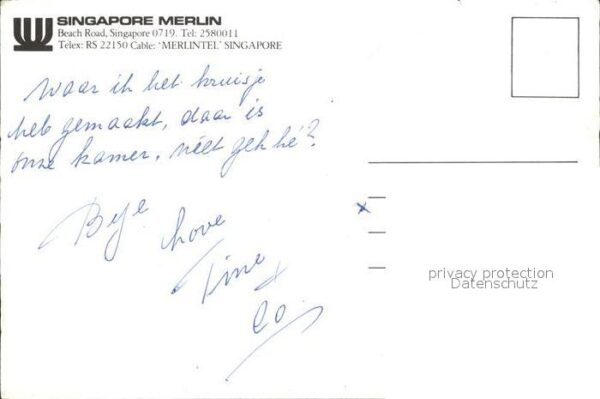 SINGAPORE MERLIN
Beach Road, Singapore 0719. Tel: 2580011
Telex: RS 22150 Cable: 'MERLINTEL' SINGAPORE
Waar ik het kruisje
heb gemaakt, daar is
onze kamer, niet gek hé?
Bye
Love
Tine +
Co.
x
privacy protection
Datenschutz